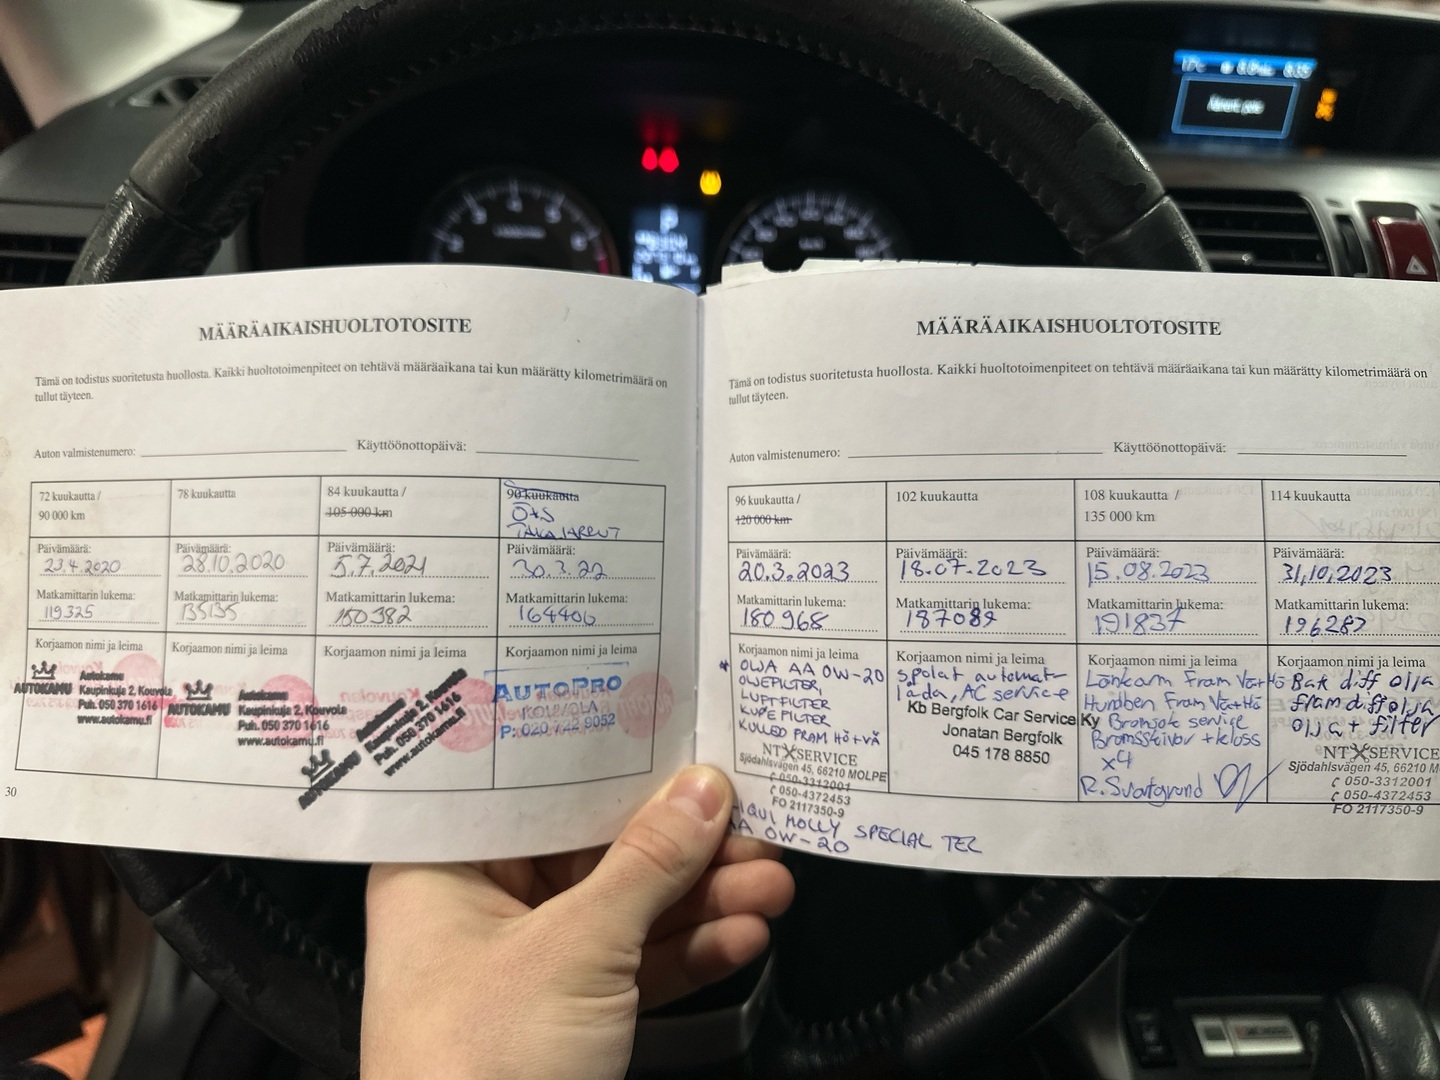 P
MÄÄRÄAIKAISHUOLTOTOSITE
Tämä on todistus suoritetusta huollosta. Kaikki huoltotoimenpiteet on tehtävä määräaikana tai kun määrätty kilometrimäärä on
tullut täyteen.
Auton valmistenumero: Käyttöönottopäivä:
72 kuukautta /
90 000 km
Päivämäärä:
23.4.2020
Matkamittarin lukema:
119325
Korjaamon nimi ja leima
AUTOKAMU
Autokamu
Kaupinkuja 2, Kouvola
Puh. 050 370 1616
www.autokamu.fi
78 kuukautta
Päivämäärä:
28.10.2020
Matkamittarin lukema:
135135
Korjaamon nimi ja leima
AUTOKAMU
Autokamu
Kaupinkuja 2, Kouvola
Puh. 050 370 1616
www.autokamu.fi
84 kuukautta /
105 000 km
Päivämäärä:
5.7.2021
Matkamittarin lukema:
150382
Korjaamon nimi ja leima
AUTOKAMU
Autokamu
Kaupinkuja 2, Kouvola
Puh. 050 370 1616
www.autokamu.fi
90 kuukautta
Ö+S
TAKAJARRUT
Päivämäärä:
30.3.22
Matkamittarin lukema:
164400
Korjaamon nimi ja leima
AUTOPRO
KOUVOLA
P: 020 722 9052
30
MÄÄRÄAIKAISHUOLTOTOSITE
Tämä on todistus suoritetusta huollosta. Kaikki huoltotoimenpiteet on tehtävä määräaikana tai kun määrätty kilometrimäärä on
tullut täyteen.
Auton valmistenumero: Käyttöönottopäivä:
96 kuukautta /
120 000 km
Päivämäärä:
20.3.2023
Matkamittarin lukema:
180968
Korjaamon nimi ja leima
* OLJA AA 0W-20
OLJEFILTER,
LUFTFILTER
KUPE FILTER
KULLED FRAM HÖ+VÄ
NT SERVICE
Sjödahlsvägen 45, 66210 MOLPE
050-3312001
050-4372453
FO 2117350-9
LIQUI MOLLY SPECIAL TEC
AA 0W-20
102 kuukautta
Päivämäärä:
18.07.2023
Matkamittarin lukema:
187089
Korjaamon nimi ja leima
spolat automat-
låda, AC service
Kb Bergfolk Car Service Ky
Jonatan Bergfolk
045 178 8850
108 kuukautta /
135 000 km
Päivämäärä:
15.08.2023
Matkamittarin lukema:
191837
Korjaamon nimi ja leima
Länkarm Fram Vä+Hö
Hundben Fram Vä+Hö
Bromsok service
Bromsskivor + kloss
x4
R. Svartgrund
114 kuukautta
Päivämäärä:
31,10,2023
Matkamittarin lukema:
196287
Korjaamon nimi ja leima
Bak diff olja
fram diff olja
olja + filter
NT SERVICE
Sjödahlsvägen 45, 66210 M
050-3312001
050-4372453
FO 2117350-9